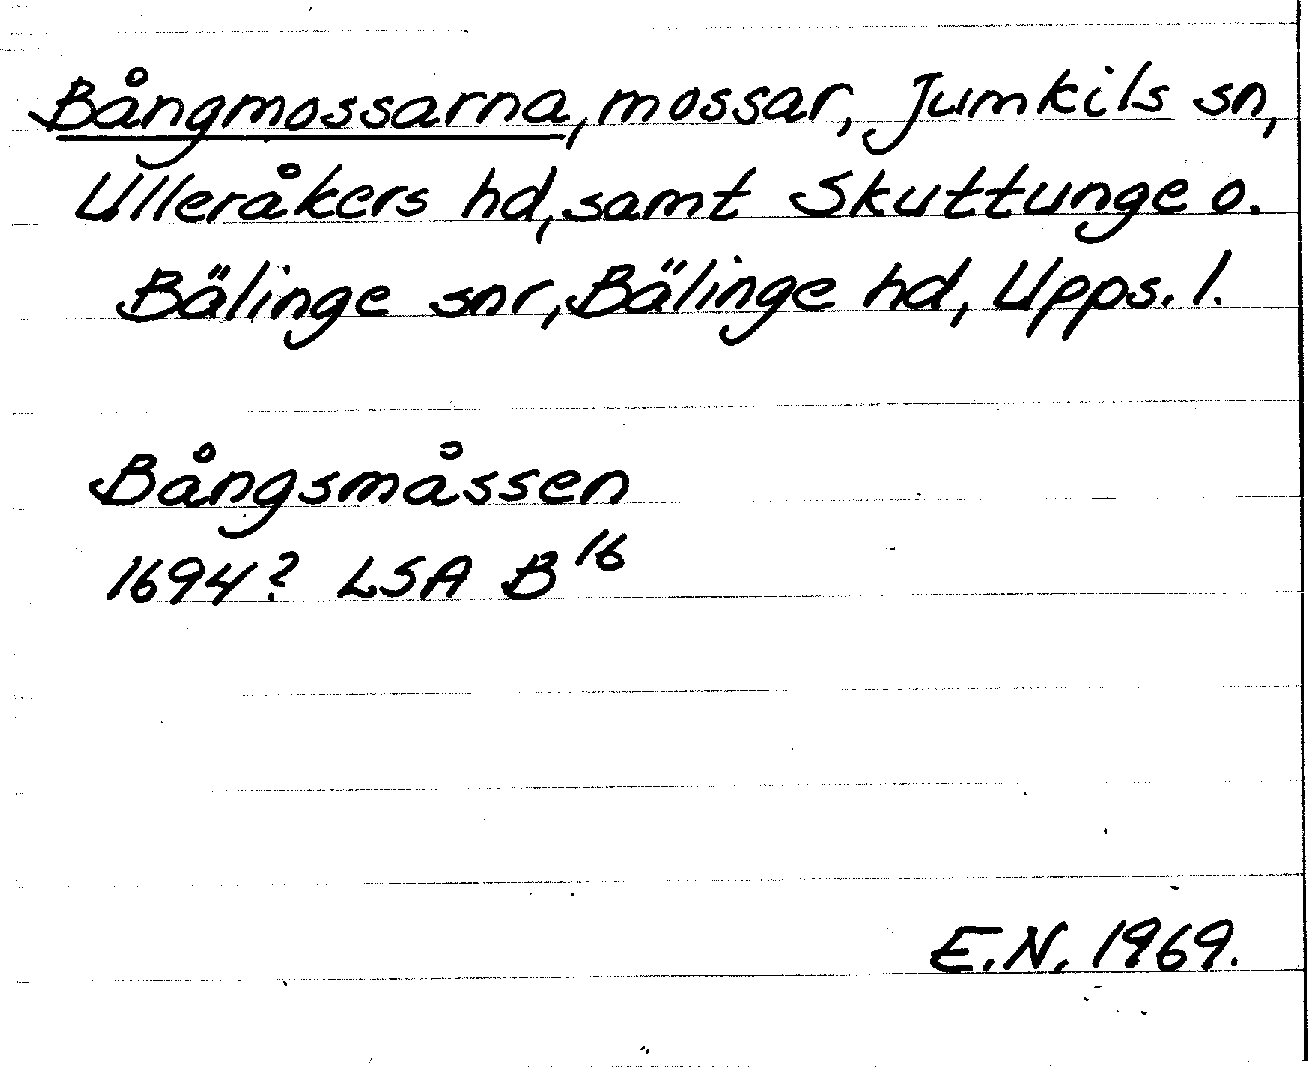 Bångmossarna, mossar, Jumkils sn,
Ulleråkers hd, samt Skuttunge o.
Bälinge snr, Bälinge hd, Upps. l.
Bångsmåssen
1694? LSA B16
E.N. 1969.